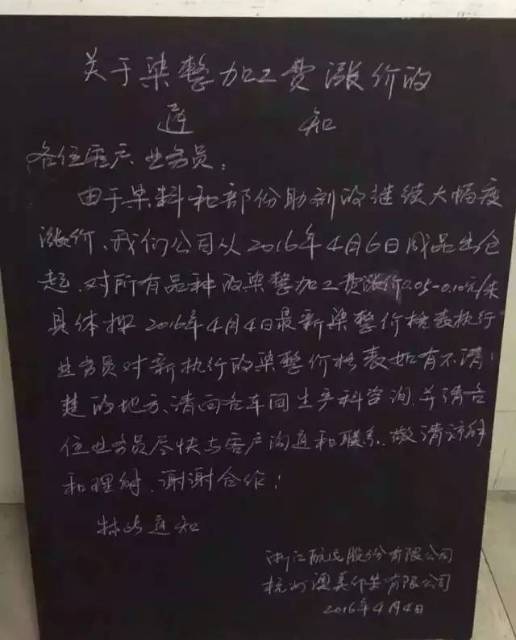 关于染整加工费涨价的
通 知
各位客户、业务员:
由于染料和部份助剂的继续大幅度
涨价,我们公司从2016年4月6日成品出仓
起,对所有品种的染整加工费涨价0.05-0.10元/米
具体按2016年4月4日最新染整价格表执行
业务员对新执行的染整价格表如有不清
楚的地方,请向各车间生产科咨询,并请各
位业务员尽快与客户沟通和联系,敬请谅解
和理解,谢谢合作!
特此通知
浙江航民股份有限公司
杭州澳美印染有限公司
2016年4月4日